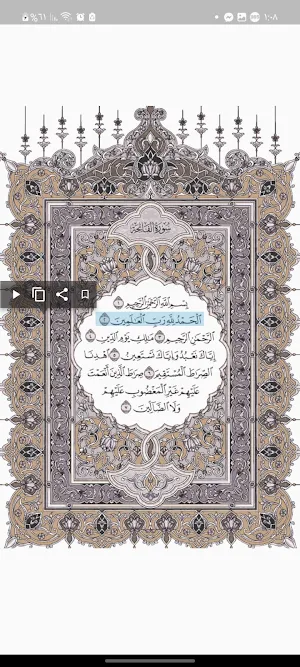 ٪٦١ ١:٠٨
سورة الفاتحة
بِسْمِ ٱللَّهِ ٱلرَّحْمَٰنِ ٱلرَّحِيمِ ١
ٱلْحَمْدُ لِلَّهِ رَبِّ ٱلْعَٰلَمِينَ ٢
ٱلرَّحْمَٰنِ ٱلرَّحِيمِ ٣ مَٰلِكِ يَوْمِ ٱلدِّينِ ٤
إِيَّاكَ نَعْبُدُ وَإِيَّاكَ نَسْتَعِينُ ٥ ٱهْدِنَا
ٱلصِّرَٰطَ ٱلْمُسْتَقِيمَ ٦ صِرَٰطَ ٱلَّذِينَ أَنْعَمْتَ
عَلَيْهِمْ غَيْرِ ٱلْمَغْضُوبِ عَلَيْهِمْ
وَلَا ٱلضَّآلِّينَ ٧